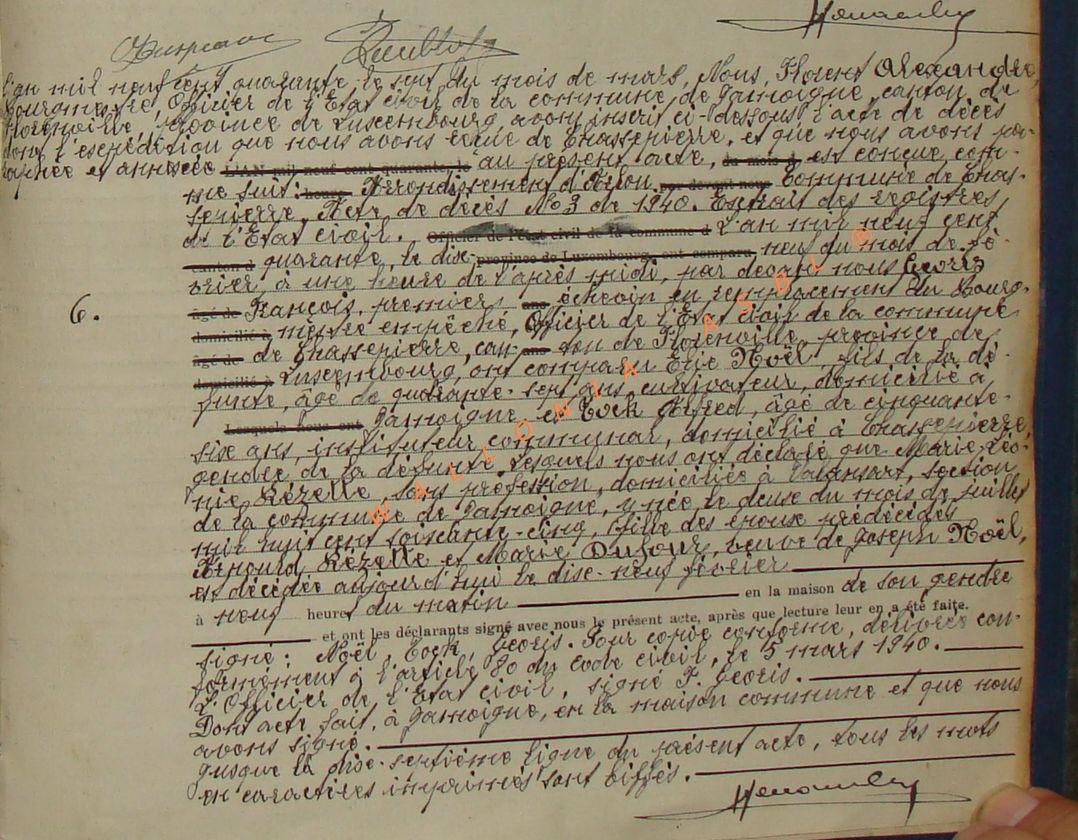 L'an mil neuf cent quarante, le sept du mois de mars, Nous, Florent Alexandre,
Bourgmestre, Officier de l'Etat civil de la commune de Jamoigne, canton de
Florenville, province de Luxembourg avons inscrit ci-dessous l'acte de décès
dont l'expédition que nous avons reçue de Chassepierre, et que nous avons pa-
raphée et annexée L'AN mil neuf cent quarante, le au présent acte, du mois d est conçue com-
me suit: heure Arrondissement d'Arlon. par devant nous Commune de Chas-
sepierre. Acte de décès No 3 de 1940. Extrait des registres
de l'Etat civil. Officier de l'état civil de la commune d L'an mil neuf cent
canton d quarante, le dix- province de Luxembourg ont comparu neuf du mois de fé-
vrier, à une heure de l'après midi, par devant nous Georis
âgé de François, premier ans échevin en remplacement du Bourg-
6. domicilié à mestre empêché, Officier de l'Etat civil de la commune
âgé de de Chassepierre, can- ans ton de Florenville, province de
domicilié à Luxembourg, ont comparu Elie Noël, fils de la dé-
funte, âgé de quarante-sept ans, cultivateur, domicilié à
Lesquels nous ont Jamoigne, et Tock Alfred, âgé de cinquante-
six ans, instituteur communal, domicilié à Chassepierre,
gendre de la défunte. Lesquels nous ont déclaré que Marie Léo-
nie Rézette, sans profession, domiciliée à Valansart, section
de la commune de Jamoigne, y née le deux du mois de juillet
mil huit cent soixante-cinq, fille des époux prédécédés
Arnould Rézette et Marie Dufour, veuve de Joseph Noël,
est décédée aujourd'hui le dix-neuf février
à neuf heures du matin en la maison de son gendre
et ont les déclarants signé avec nous le présent acte, après que lecture leur en a été faite.
signé: Noël, Tock, Georis. Pour copie conforme, délivrée con-
formément à l'article 80 du code civil, le 5 mars 1940.
L'Officier de l'Etat civil, signé F. Georis.
Dont acte fait, à Jamoigne, en la maison commune et que nous
avons signé.
Jusque la dix-septième ligne du présent acte, tous les mots
en caractères imprimés sont biffés.
WALLONIA ASBL ©